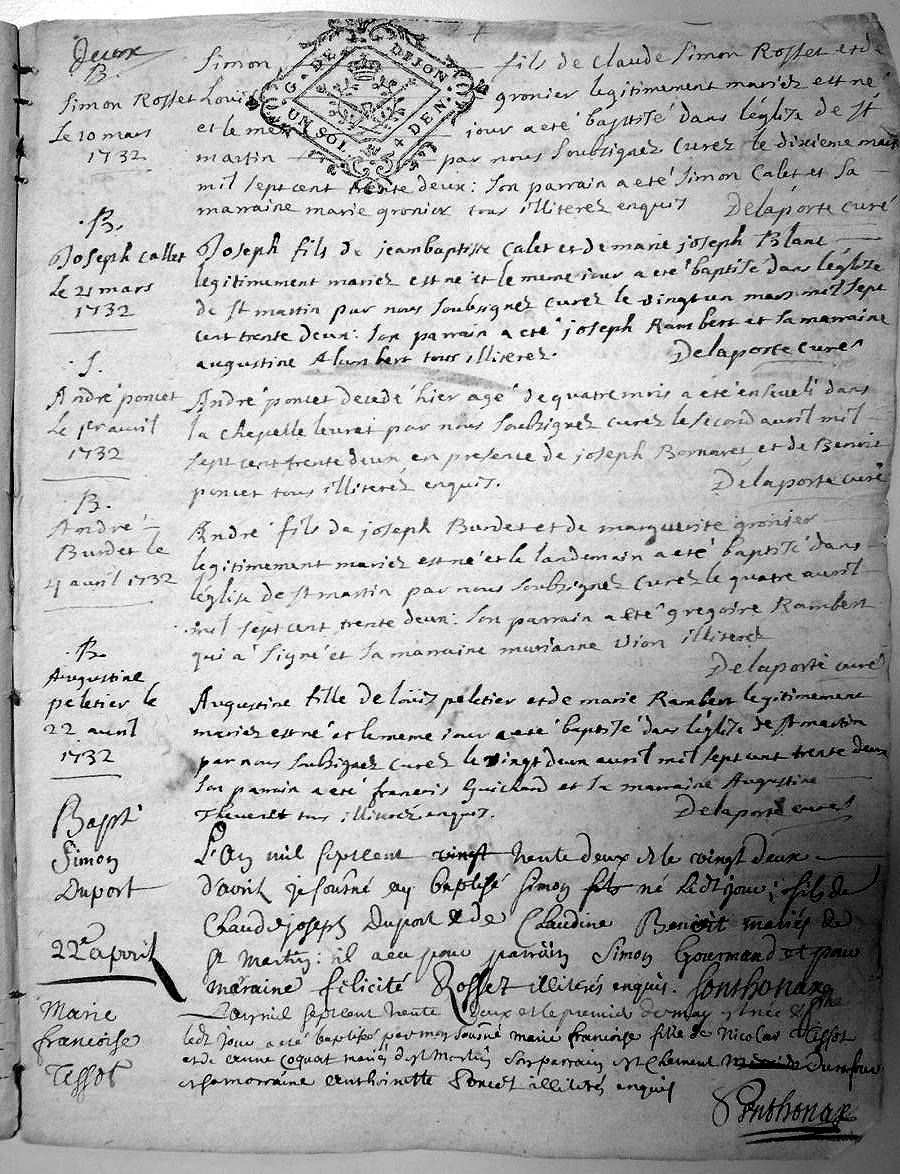 Deux
B.
Simon Rosset
Le 10 mars
1732
Simon fils de Claude Simon Rosset et de
Louise gronier legitimement mariez est né
et le meme jour a eté baptisé dans l'églize de st
martin par nous soubsignez Curez le dixieme mars
mil sept cent trente deux : son parrain a eté Simon Calet et sa
marraine marie gronier tous illiterez enquis Delaporte curé
.B.
Joseph callet
Le 21 mars
1732
Joseph fils de jeanbaptiste Calet et de marie joseph Blanc
legitimement mariez est né et le meme jour a eté baptisé dans l'églize
de st martin par nous soubsignez curez le vingt un mars mil sept
cent trente deux : son parrain a eté joseph Rambert et sa marraine
augustine Alumbert tous illiterez. Delaporte curé
.S.
André poncet
Le 1er avril
1732
André poncet decedé hier agé de quatre mois a eté enseveli dans
la chapelle leuret par nous soubsignez curez le second avril mil
sept cent trente deux en presence de joseph Bornaret et de Benoit
poncet tous illiterez enquis. Delaporte curé
B.
André
Burdet le
4 avril 1732
André fils de joseph Burdet et de marguerite gronier
legitimement mariez est né et le landemain a eté baptisé dans
l'églize de st martin par nous soubsignez Curez le quatre avril
mil sept cent trente deux : son parrain a eté gregoire Rambert
qui a signé et sa marraine marianne vion illiterez
Delaporte curé
.B.
Augustine
peletier le
22 avril
1732
Augustine fille de loüis peletier et de marie Rambert legitimement
mariez est né et le meme jour a eté baptisé dans l'églize de st martin
par nous soubsignez curez le vingt deux avril mil sept cent trente deux
son parrain a eté francois Guichard et sa marraine Augustine
Thevenet tous illiterez enquis. Delaporte curé
Bapt
Simon
Duport
22e april
L'an mil sept cent vingt trente deux et le vingt deux
d'avril je sousné ay baptisé Simon fils né ledt jour ; fils de
Claude joseph Duport & de Claudine Benoit mariés de
St Martin : il a eu pour parrain Simon Gourmand et pour
maraine felicité Rosset illiterés enquis. Sonthonax
Marie
francoise
Tissot
L'an mil sept cent trente deux et le premier de may est née &
ledt jour a eté baptisée par moy sousné marie francoise fille de Nicolas Tissot
et de Coquat mariés de St Martin son parrain est Clement
et sa marraine anthoinette Benoit illiterés enquis
Sonthonax
G. DE DIJON
UN SOL 4 DEN.